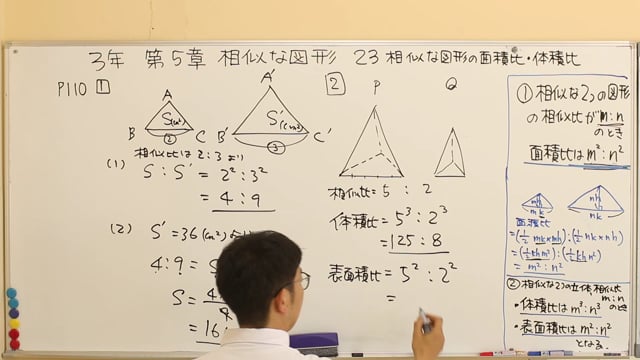 3年 第5章 相似な図形 23 相似な図形の面積比・体積比
P110 1
A
S(cm²)
B ② C
A'
S'(cm²)
B' ③ C'
相似比は2:3より
(1) S:S' = 2²:3²
= 4:9
(2) S'=36(cm²)
4:9 = S
S = 4
= 16
2 P Q
相似比 = 5 : 2
体積比 = 5³ : 2³
= 125 : 8
表面積比 = 5² : 2²
=
① 相似な2つの図形
の相似比が m:n
のとき
面積比は m²:n²
mh
mk
nh
nk
面積比
=(½ mk×mh):(½ nk×nh)
=(½khm²):(½khn²)
= m² : n²
② 相似な2つの立体 相似比
m:n
のとき
・体積比は m³:n³
・表面積比は m²:n²
となる.